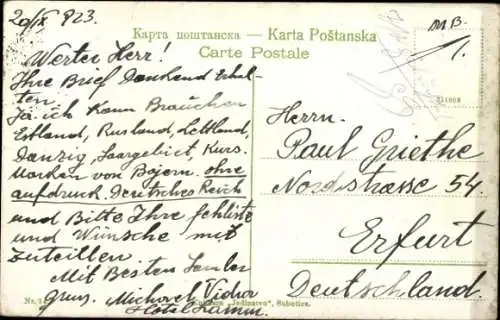 20/IX 923.
Карта поштанска. – Karta Poštanska
Carte Postale
Werter Herr!
Ihre Brief Dankend Erhal-
ten.
Ja ich kann Brauchen
Estland, Rusland, Lettland,
Danzig, Saargebiet, Kurs.
Marken von Bajern. ohne
aufdruck. Deutsches Reich
und Bitte Ihre fehlliste
und Wünsche mit
zuteillen
Mit Besten Samler
grus. Michael
Hotel Lamm.
Herrn.
Paul Griethe
Nordstrasse 54
Erfurt
Deutschland.
"Jedinstvo", Subotica.